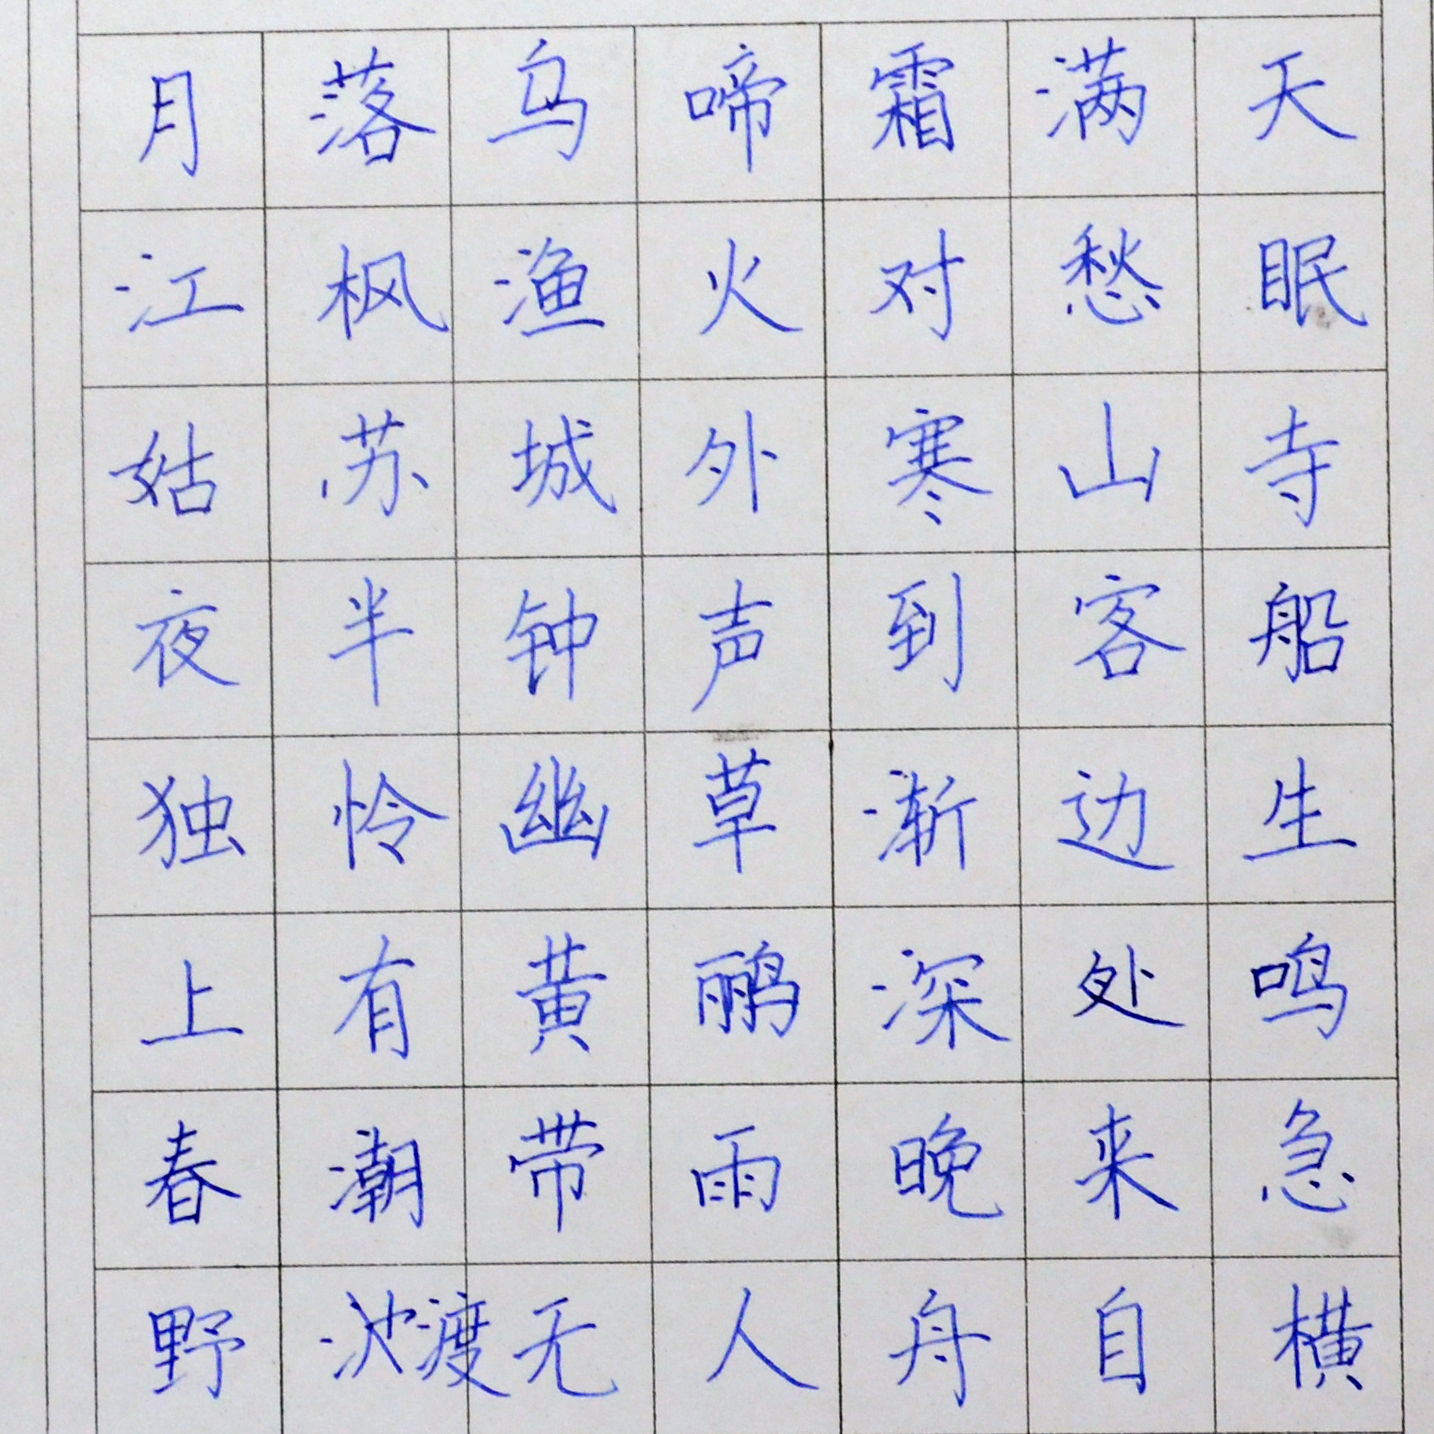 月落乌啼霜满天
江枫渔火对愁眠
姑苏城外寒山寺
夜半钟声到客船
独怜幽草渐边生
上有黄鹂深处鸣
春潮带雨晚来急
野渡无人舟自横